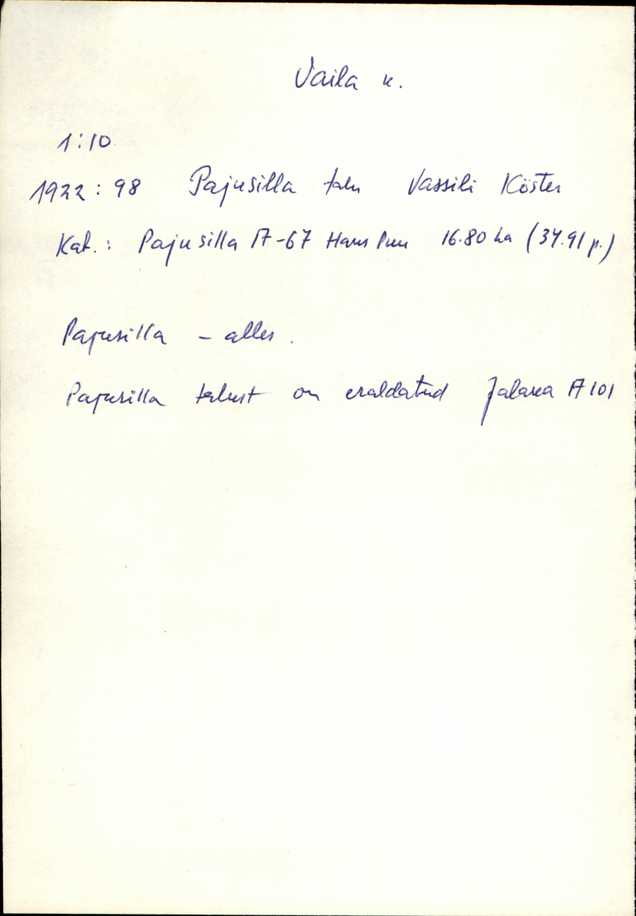 Vaila k.
1:10
1922: 98 Pajusilla talu Vassili Köster
Kat.: Pajusilla A-67 Hans 16.80 ha (34.91 p.)
Pajusilla - alles.
Pajusilla talust on eraldatud A 101